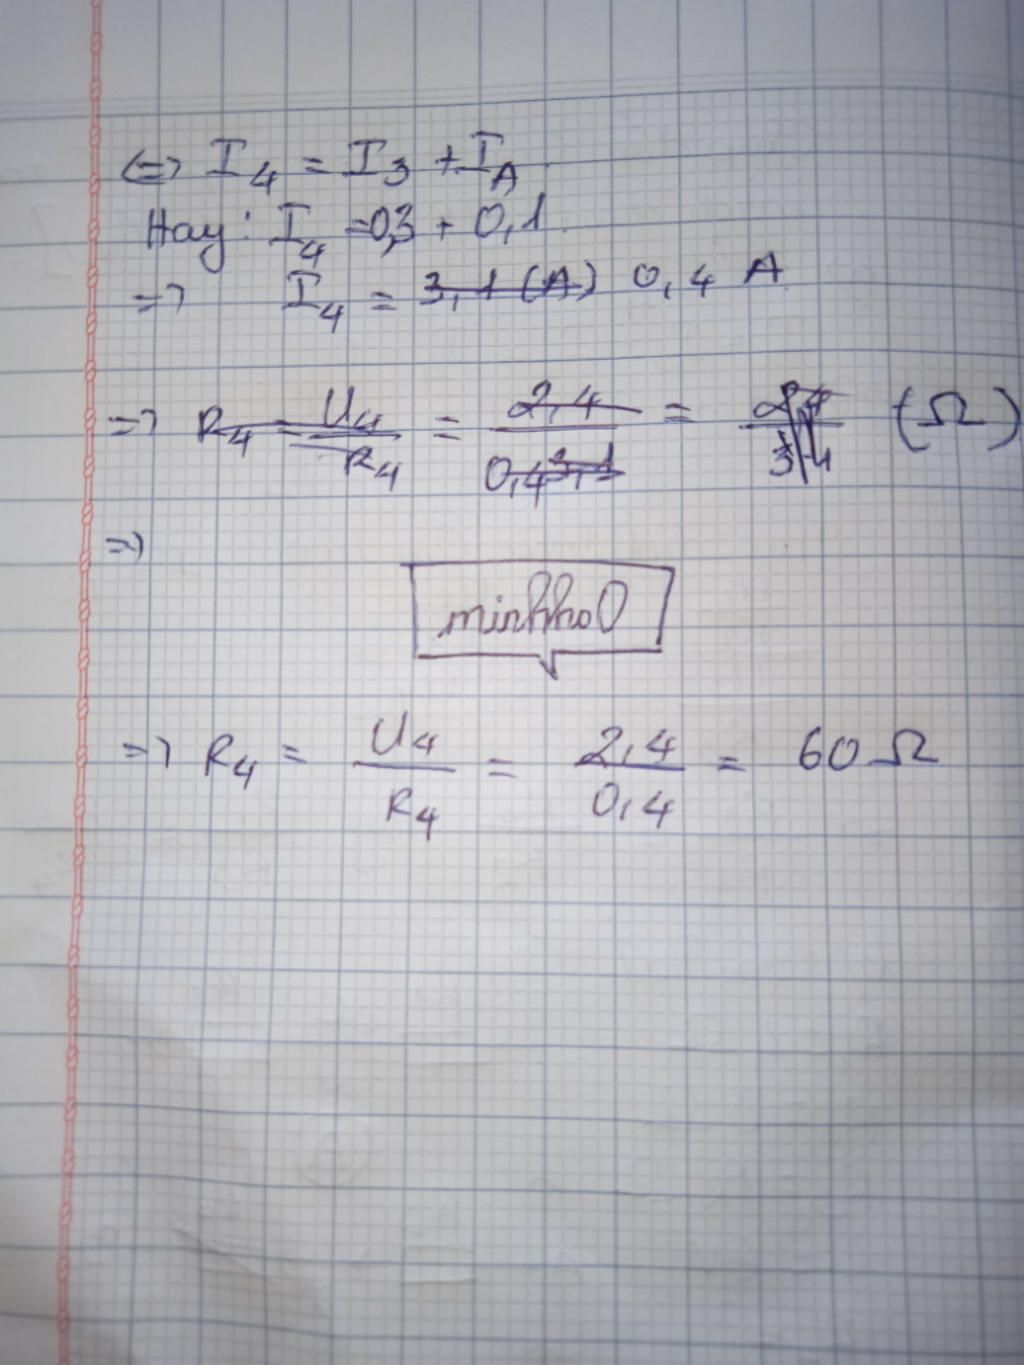 <=> I4 = I3 + IA
Hay: I4 = 0,3 + 0,1
=> I4 = 3,1 (A) 0,4 A
=> R4 = U4/R4 = 2,4/0,4 3,1 = 24/34 (Ω)
=>
minhhol
=> R4 = U4/R4 = 2,4/0,4 = 60 Ω